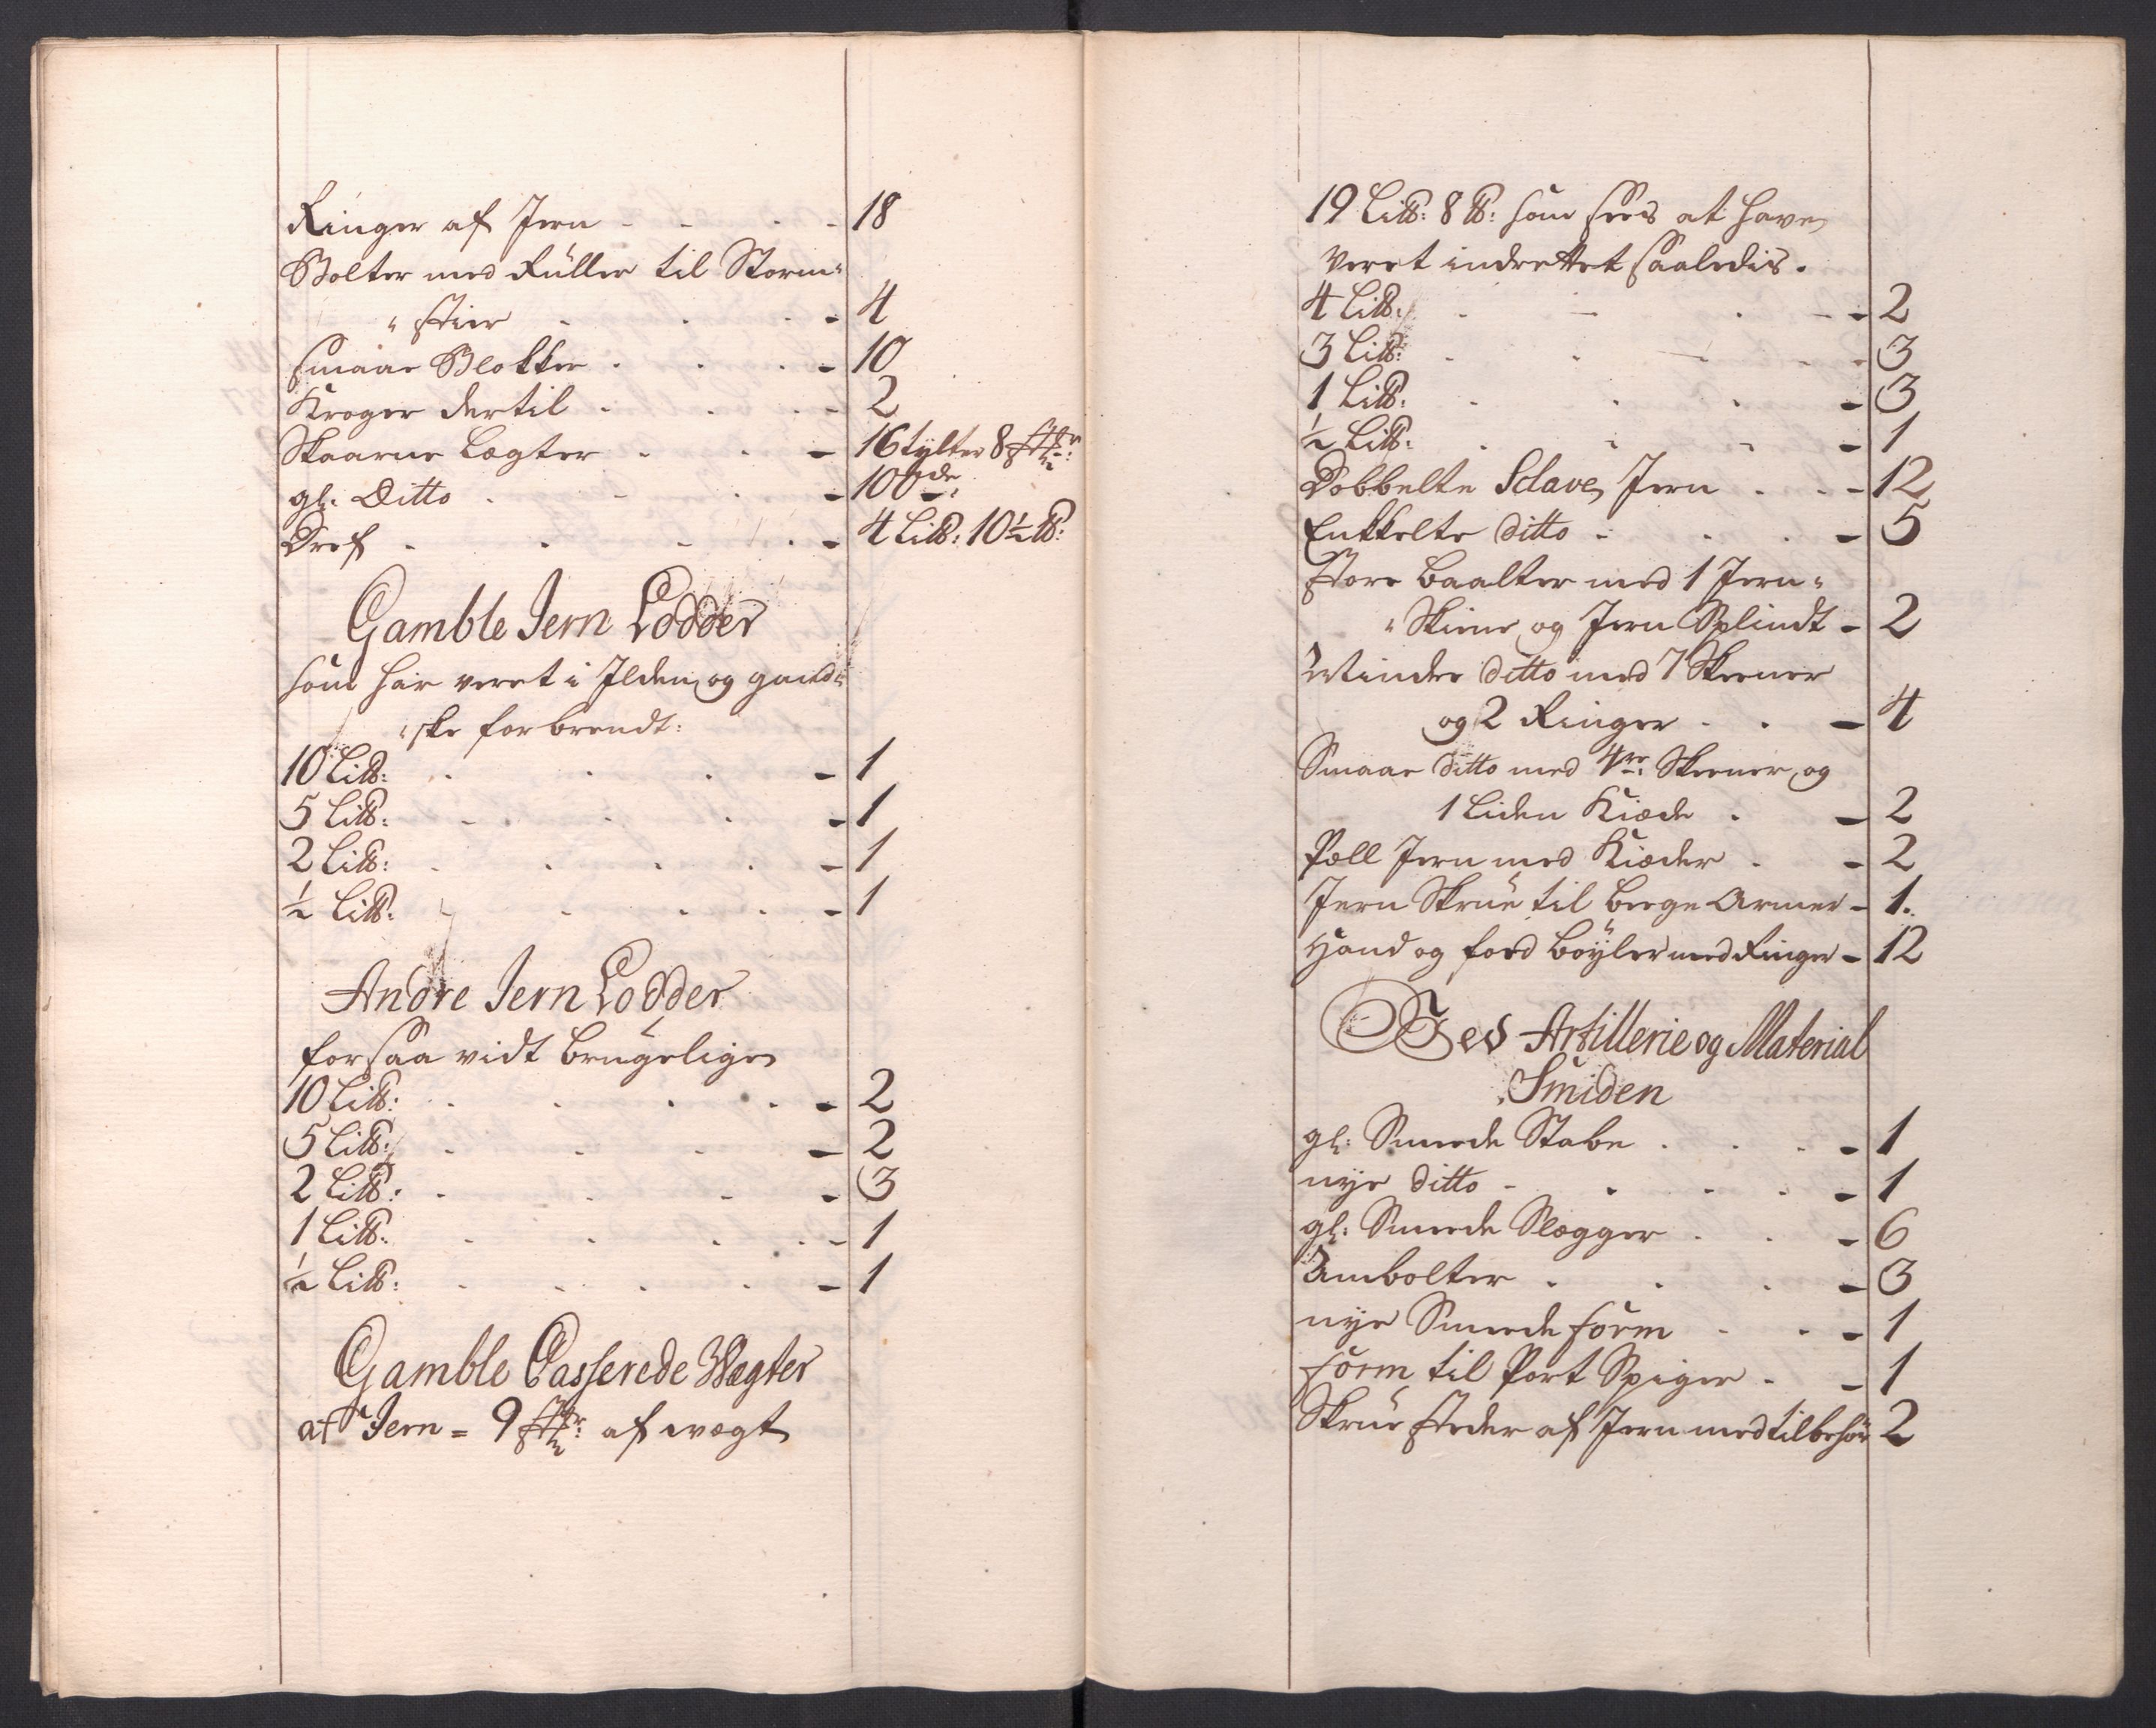 Ringer af Jern - - - - 18
Bolter med Rüller til Storm-
-stier - - - 4
smaae Blokker - - - 10
Kroger dertil - - - 2
Skaarne Lægter - - - 16 tylter 8 stkr:
gl: Ditto - - - 100de:
Dref - - - 4 Lit℔: 10½ ℔:
Gamble Jern Lodder
som har veret i Ilden og gand-
-ske forbrendt:
10 Lit℔: - - - 1
5 Lit℔: - - - 1
2 Lit℔: - - - 1
½ Lit℔: - - - 1
Andre Jern Lodder
forsaa vidt brugelige
10 Lit℔: - - - 2
5 Lit℔: - - - 2
2 Lit℔: - - - 3
1 Lit℔: - - - 1
½ Lit℔: - - - 1
Gamble Casserede Wegter
af Jern = 9 stkr: af wægt
19 Lit℔: 8 ℔: som sees at have
veret indrettet saaledis.
4 Lit℔: - - - 2
3 Lit℔: - - - 3
1 Lit℔: - - - 3
½ Lit℔: - - - 1
Dobbelte Sclave Jern - - - 12
Enkkelte ditto - - - 5
store Baalter med 1 Jern-
-Skiene og Jern Splindt - 2
Mindre ditto med 7 Skeener
og 2 Ringer - - - 4
Smaae ditto med 4re: Skeener og
1 liden Kiæde - - 2
Pæll Jern med Kiæder - - 2
Jern Skrue til Berge Armer - 1.
Hand og foed bøyler med Ringer - 12
Ved Artillerie og Material
Smiden
gl: Smeede Stabe - - - 1
nye ditto - - - 1
gl: Smeede Slægger - - - 6
Ambolter - - - 3
nye Smeede form - - - 1
form til Port Spiger - - 1
Skrue steder af Jern med tilbehör 2